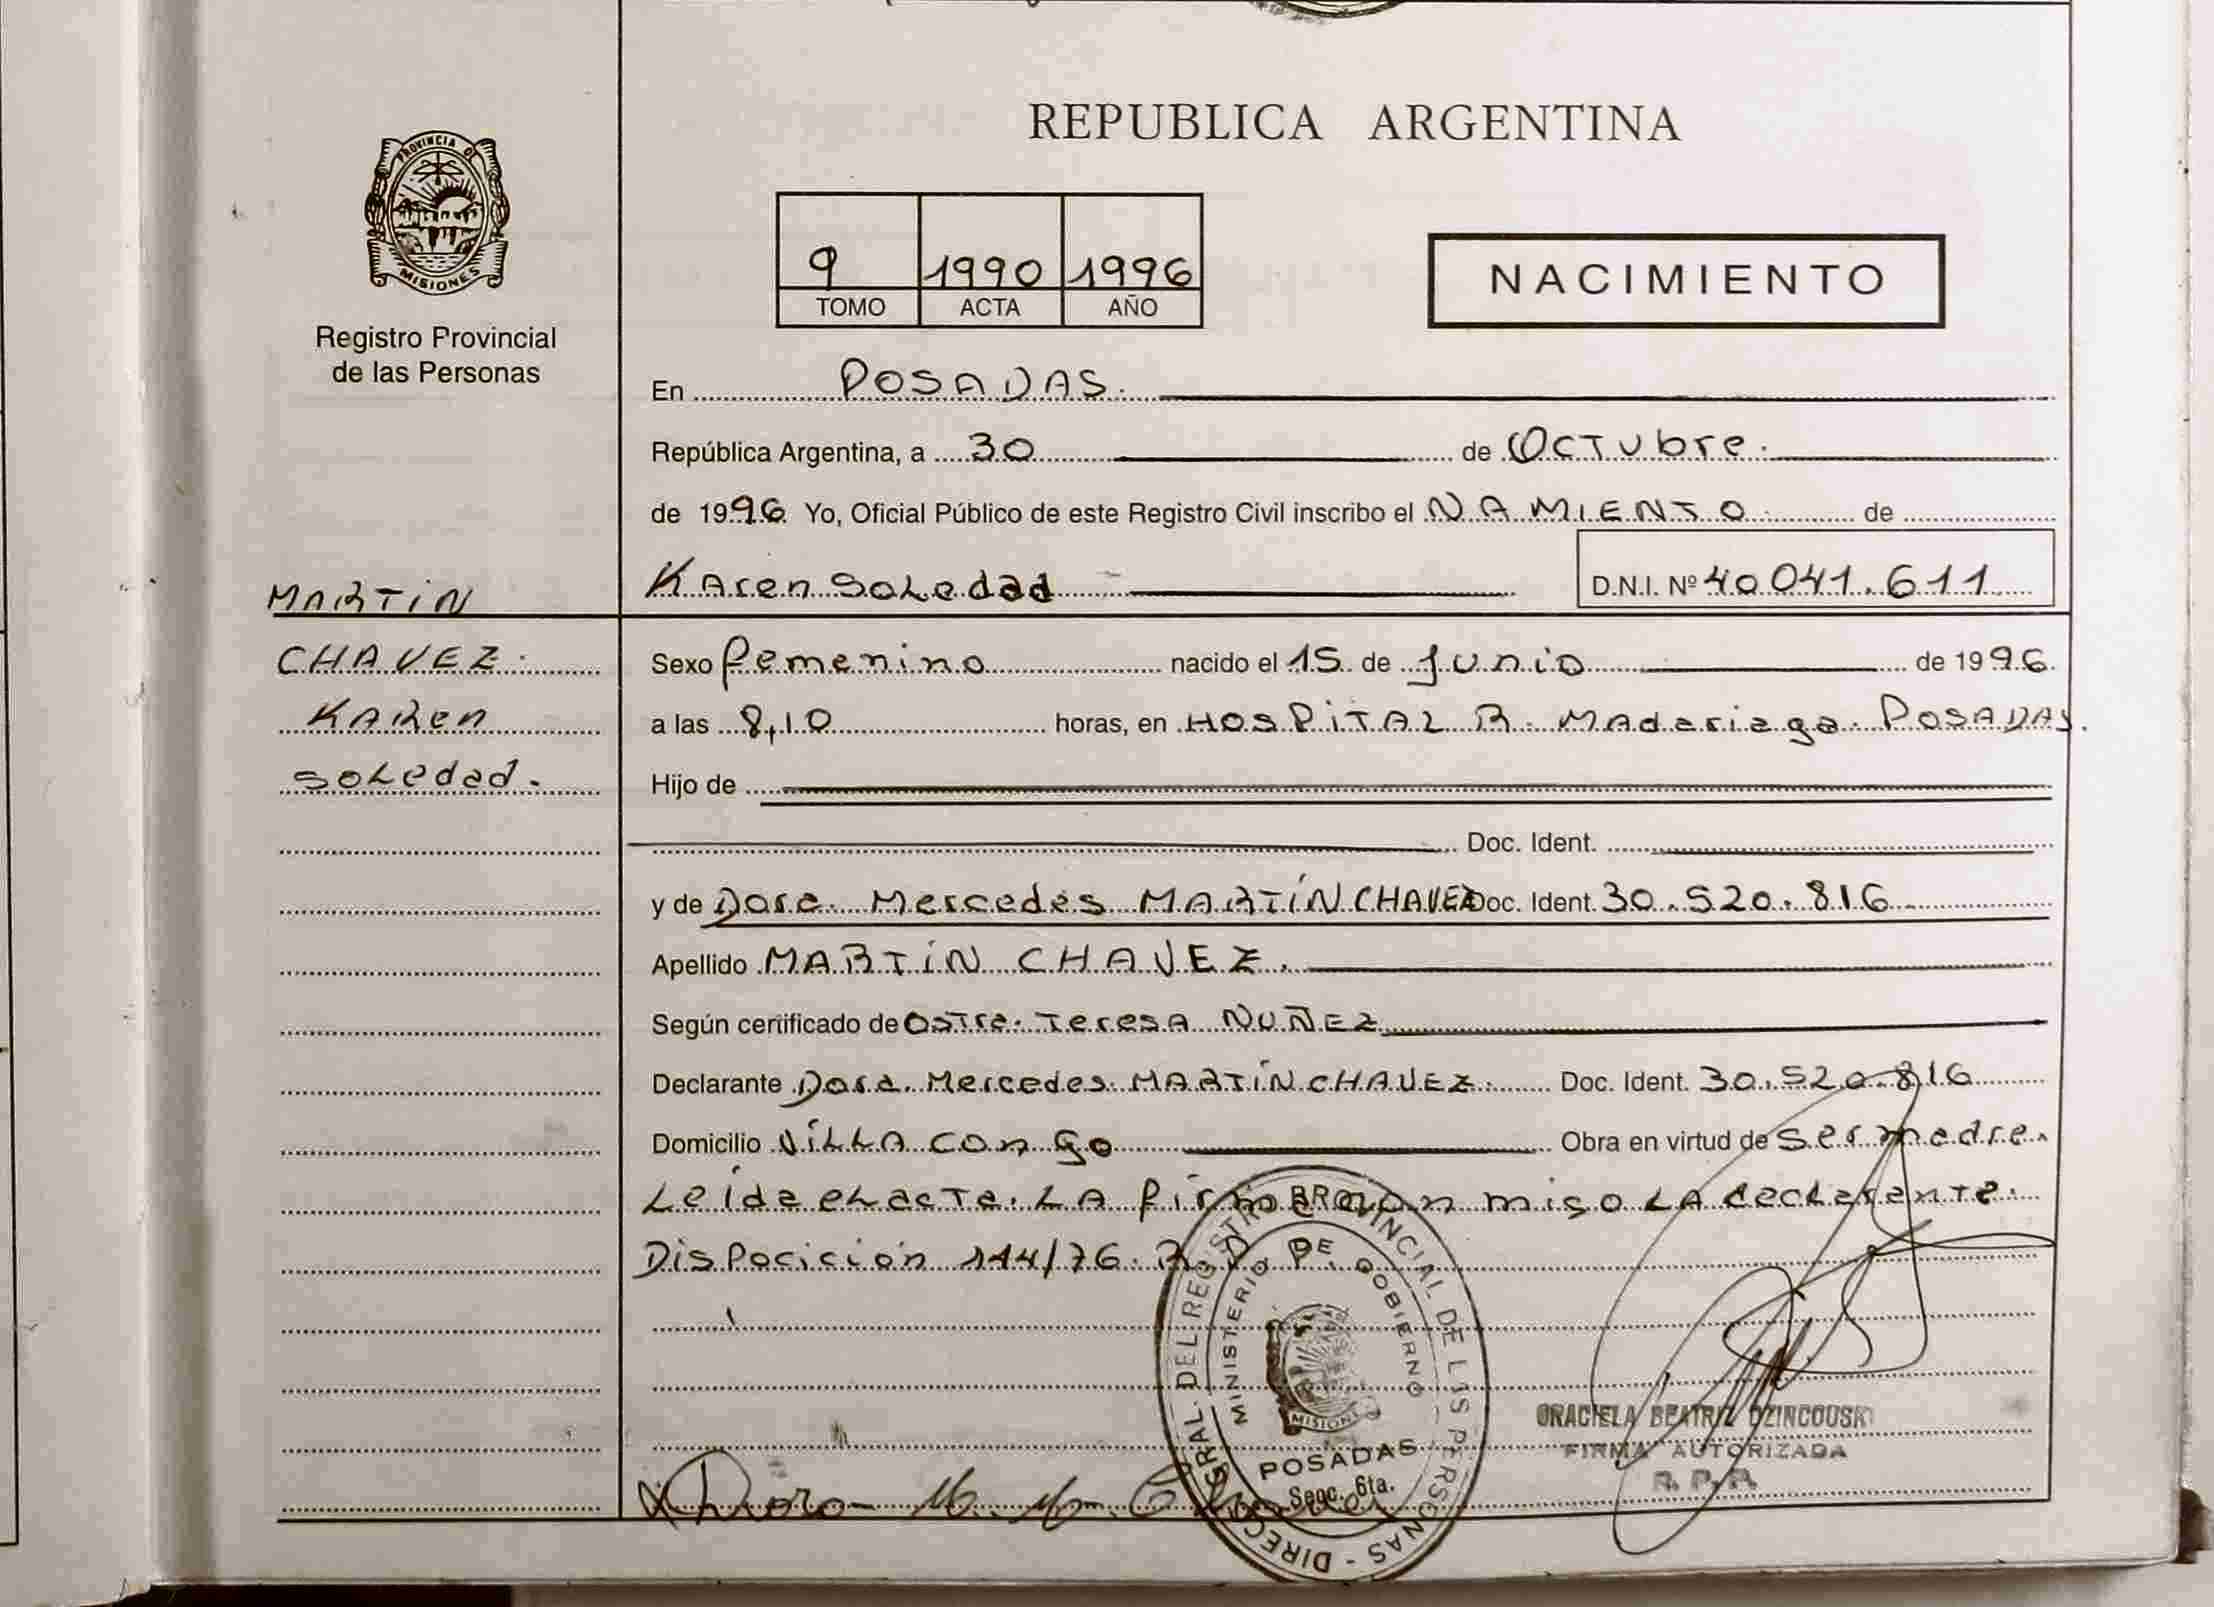 PROVINCIA DE
MISIONES
Registro Provincial
de las Personas
MARTIN
CHAVEZ.
KAREN
SOLEDAD.
REPUBLICA ARGENTINA
9 1990 1996
TOMO ACTA AÑO
NACIMIENTO
En POSADAS.
República Argentina, a 30 de Octubre.
de 1996 Yo, Oficial Público de este Registro Civil inscribo el NAMIENTO de
Karen Soledad D.N.I. Nº 40.041.611
Sexo femenino nacido el 15 de Junio de 1996.
a las 8,10 horas, en HOSPITAL R. Madariaga. POSADAS.
Hijo de
Doc. Ident.
y de Dora Mercedes MARTÍN CHAVEZ Doc. Ident. 30.520.816
Apellido MARTÍN CHAVEZ.
Según certificado de Obstra. Teresa NUÑEZ
Declarante Dora Mercedes MARTÍN CHAVEZ. Doc. Ident. 30.520.816
Domicilio VILLA Congo Obra en virtud de ser madre.
Leída el acta. La firma con migo la declarante.
Disposición 144/76. R. P. P.
DIRECC GRAL. DEL REGISTRO PROVINCIAL DE LAS PERSONAS
MINISTERIO DE GOBIERNO
MISIONES
POSADAS
Secc. 6ta.
GRACIELA BEATRIZ DZINCOUSKI
FIRMA AUTORIZADA
R. P. P.
Dora M. M. Chavez